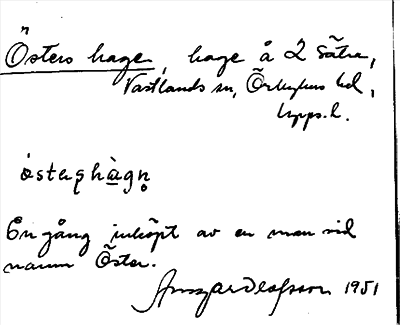 Östers hagen, hage å 2 Sätra,
Västlands sn, Örbyhus hd,
Upps. l.
östeşhàgn̥
En gång inköpt av en man vid
namn Öster.
Ansgar Olofsson 1951